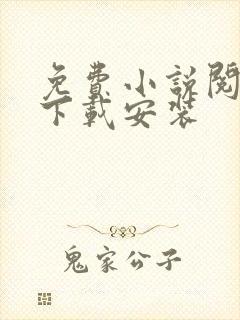 免費小說閱
下載安裝
鬼家公子